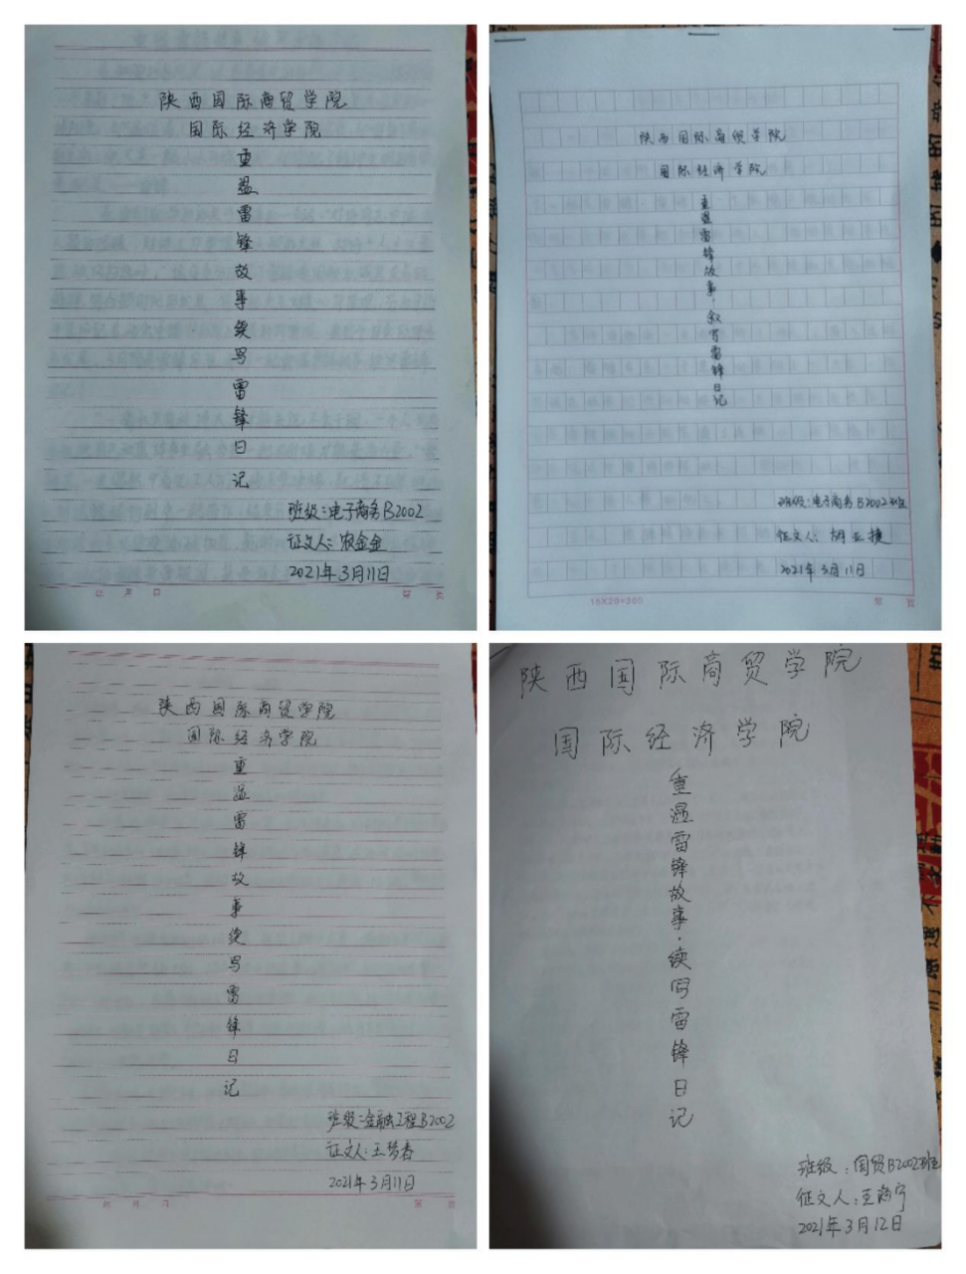 陕西国际商贸学院
国际经济学院
重
温
雷
锋
故
事
续
写
雷
锋
日
记
班级:电子商务B2002
征文人:农金金
2021年3月11日
陕西国际商贸学院
国际经济学院
重
温
雷
锋
故
事
·
叙
写
雷
锋
日
记
班级:电子商务B2002班
征文人:胡亚捷
2021年3月11日
15X20=300
陕西国际商贸学院
国际经济学院
重
温
雷
锋
故
事
续
写
雷
锋
日
记
班级:金融工程B2002
征文人:王梦春
2021年3月11日
陕西国际商贸学院
国际经济学院
重
温
雷
锋
故
事
·
续
写
雷
锋
日
记
班级:国贸B2002班
征文人:王尚宁
2021年3月12日